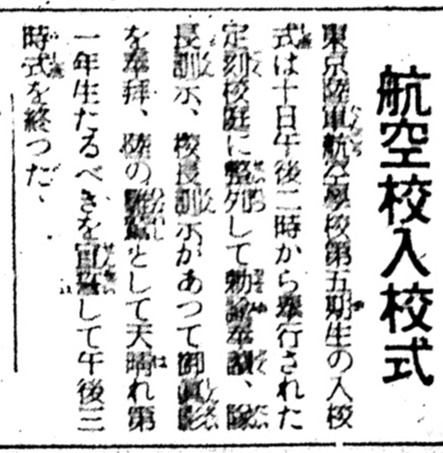 航空校入校式
東京陸軍航空學校第五期生の入校
式は十日午後二時から擧行された
定刻校庭に整列して勅諭奉讀、隊
長訓示、校長訓示があつて御眞影
を奉拜、陸の荒鷲として天晴れ第
一年生たるべきを宣誓して午後三
時式を終つた、